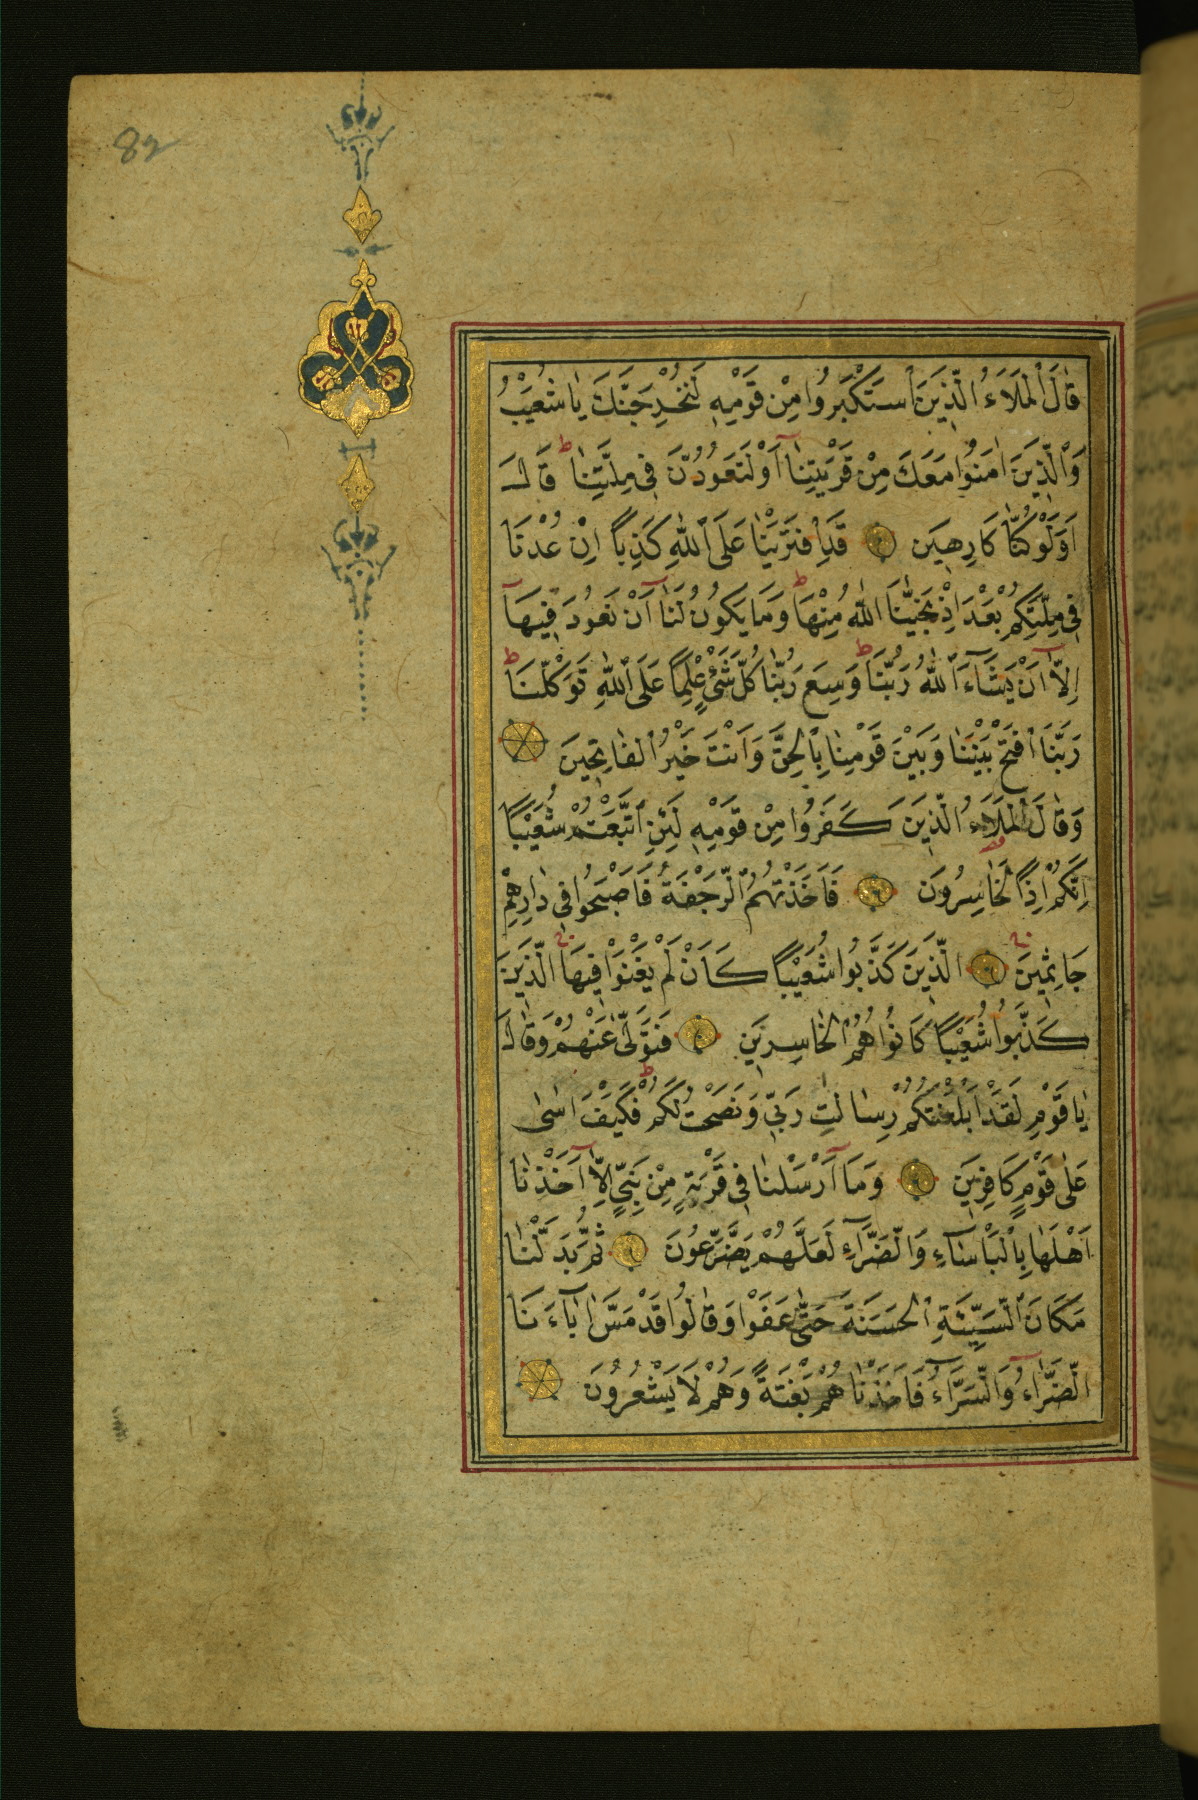 82
قٰالَ ٱلْمَلَاَءُ الَّذِينَ ٱسْتَكْبَرُوا مِنْ قَوْمِهِ لَنُخْرِجَنَّكَ يٰا شُعَيْبُ
وَٱلَّذِينَ اٰمَنُوا مَعَكَ مِنْ قَرْيَتِنٰا اَوْ لَتَعُودُنَّ فِي مِلَّتِنٰا ط قَالَ
اَوَلَوْ كُنَّا كَارِهِينَ قَدِ ٱفْتَرَيْنٰا عَلَى ٱللّٰهِ كَذِبًا اِنْ عُدْنَا
فِي مِلَّتِكُمْ بَعْدَ اِذْ نَجّٰينَا اللّٰهُ مِنْهَا ط وَمَا يَكُونُ لَنٰا اَنْ نَعُودَ فِيهَا
اِلَّا اَنْ يَشَآءَ ٱللّٰهُ رَبُّنَا ط وَسِعَ رَبُّنٰا كُلَّ شَيْءٍ عِلْمًا عَلَى ٱللّٰهِ تَوَكَّلْنَا ط
رَبَّنَا ٱفْتَحْ بَيْنَنٰا وَبَيْنَ قَوْمِنٰا بِٱلْحَقِّ وَاَنْتَ خَيْرُ ٱلْفٰاتِحِينَ
وَقٰالَ ٱلْمَلَاَءُ الَّذِينَ كَفَرُوا مِنْ قَوْمِهِ لَئِنِ ٱتَّبَعْتُمْ شُعَيْبًا
اِنَّكُمْ اِذًا لَخٰاسِرُونَ فَاَخَذَتْهُمُ ٱلرَّجْفَةُ فَاَصْبَحُوا فِي دٰارِهِمْ
جَاثِمِينَ الَّذِينَ كَذَّبُوا شُعَيْبًا كَاَنْ لَمْ يَغْنَوْا فِيهَا الَّذِينَ
كَذَّبُوا شُعَيْبًا كَانُوا هُمُ ٱلْخٰاسِرِينَ فَتَوَلّٰى عَنْهُمْ وَقٰالَ
يٰا قَوْمِ لَقَدْ اَبْلَغْتُكُمْ رِسٰالٰاتِ رَبِّي وَنَصَحْتُ لَكُمْ ط فَكَيْفَ اٰسٰى
عَلٰى قَوْمٍ كَافِرِينَ وَمَا اَرْسَلْنٰا فِي قَرْيَةٍ مِنْ نَبِيٍّ اِلَّا اَخَذْنٰا
اَهْلَهٰا بِٱلْبَأْسَآءِ وَالضَّرَّآءِ لَعَلَّهُمْ يَضَّرَّعُونَ ثُمَّ بَدَّلْنٰا
مَكَانَ ٱلسَّيِّئَةِ ٱلْحَسَنَةَ حَتّٰى عَفَوْا وَقٰالُوا قَدْ مَسَّ اٰبٰآءَنَا
الضَّرَّآءُ وَالسَّرَّآءُ فَاَخَذْنٰاهُمْ بَغْتَةً وَهُمْ لَا يَشْعُرُونَ